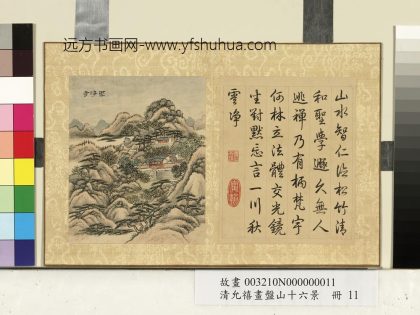 远方书画网-www.yfshuhua.com
山水智仁 松竹清
和聖學邈久無人
逃禪乃有柄梵宇
何林立法體交光鏡
坐對默忘言一川秋
雲净
故畫 003210N000000011
清允禧畫盤山十六景 冊 11